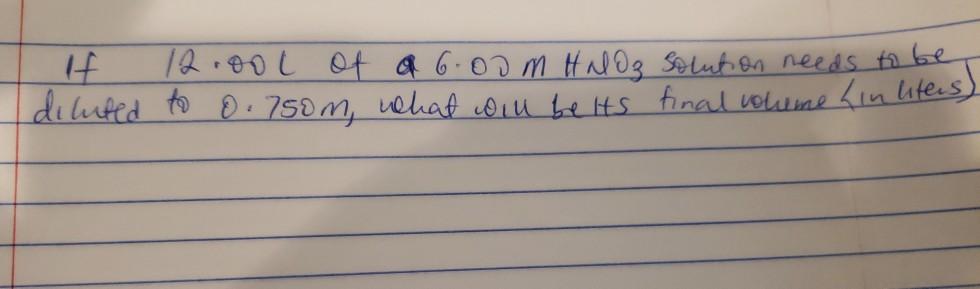 If 12.00L of a 6.00 m HNO3 solution needs to be
diluted to 0.750m, what will be its final volume (in liters)